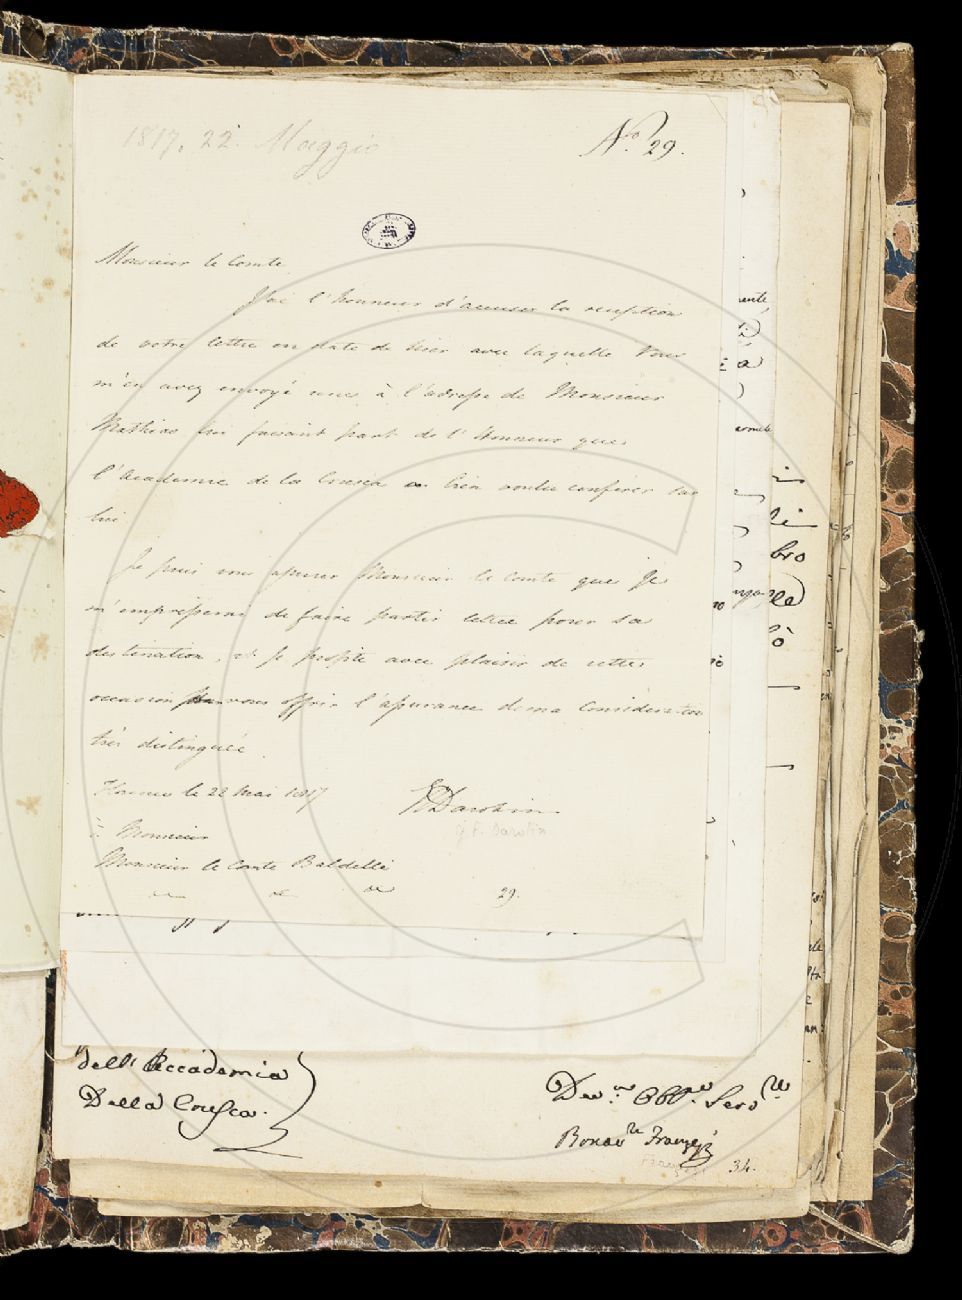 1817. 22. Maggio
N.o 29.
Monsieur le Comte
J'ai l'honneur d'accuser la reception
de votre lettre en date de hier avec laquelle Vous
m'en avez envoyé à l'adresse de Monsieur
Mathias lui faisant part de l'honneur que
l'Academie de la Crusca a bien voulu conferer sur
lui
Je puis vous assurer Monsieur le Comte que je
m'empresserai de faire partir cette pour sa
destination, et je profite avec plaisir de cette
occasion pour vous offrir l'assurance de ma Consideration
très distinguée
le 22 Mai 1817
Darotin
G. F. Darotin
à Monsieur
Monsieur le Comte Baldelli
29.
dell' Accademia
Della Crusca.
Dev.mo Obb.mo Serv.re
34.